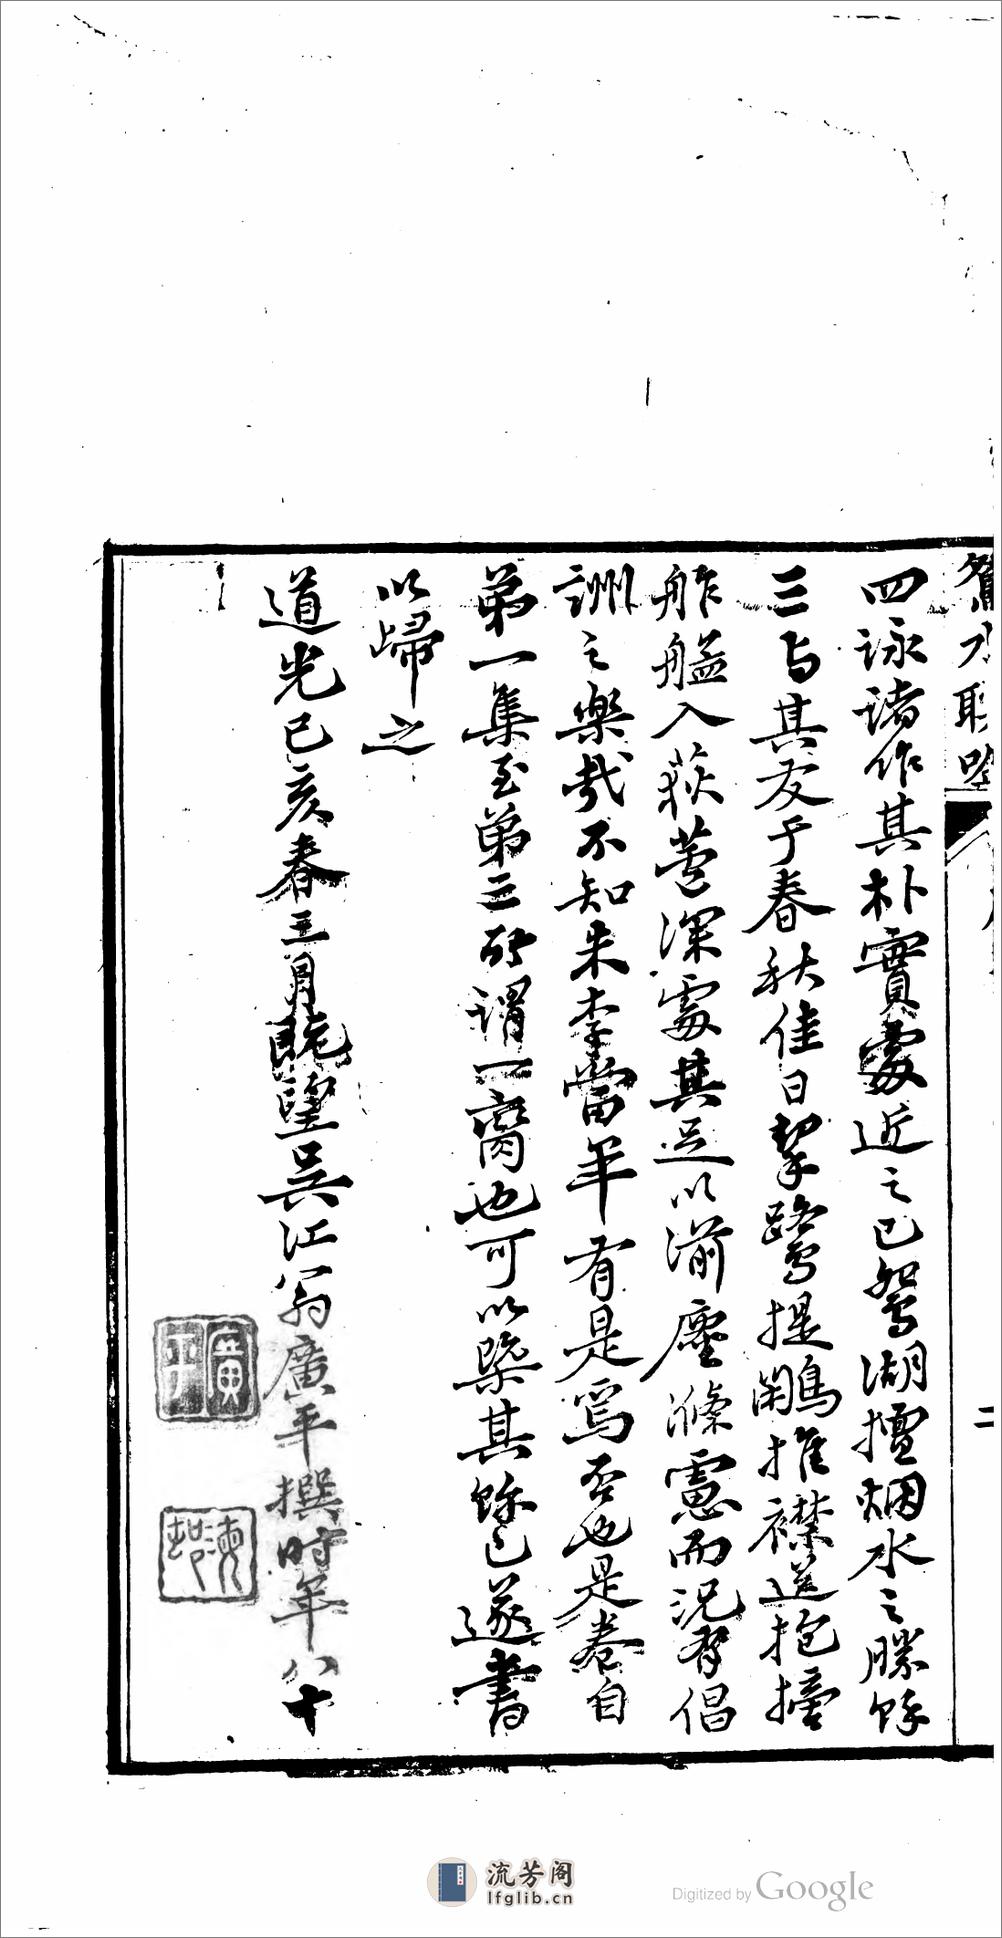 四詠諸作其朴實處近之已鴛湖擅烟水之勝餘
三与其友于春秋佳日挈鷺提鷴推襟送抱搒
舴艋入荻蘆深處其足以湔塵滌慮而況有倡
詶之樂哉不知朱李當年有是焉否也是卷自
第一集至第三所謂一臠也可以槩其餘已遂書
以歸之
道光己亥春三月既望吳江翁廣平撰时年八十
廣平
鴛水聯唫
二
流芳阁
lfglib.cn
Digitized by Google